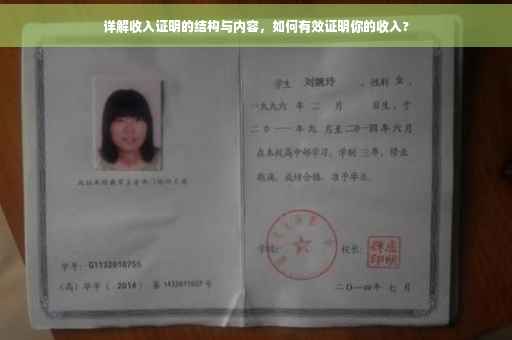 详解收入证明的结构与内容，如何有效证明你的收入?
学生 刘婉玲 ，性别 女 ，
一九九六 年 二 月 日生，于
二〇一一年九 月至二〇一四年六月
在本校高中部学习，学制 三年，修业
期满，成绩合格，准予毕业。
学校： 校长：
学号： G1132010755
（高）毕字（ 2014 ）第 1432011027 号
二〇一四年 七 月